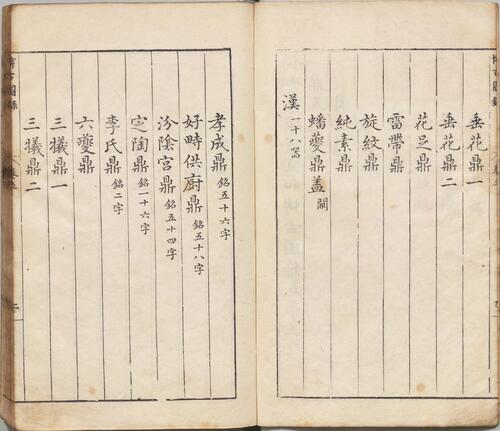 垂花鼎一
垂花鼎二
花足鼎
雷帶鼎
旋紋鼎
純素鼎
蟠夔鼎蓋闕
漢一十八器
孝成鼎銘五十六字
好畤供廚鼎銘五十八字
汾陰宮鼎銘五十四字
定陶鼎銘一十六字
李氏鼎銘二字
六夔鼎
三犧鼎一
三犧鼎二
博古圖錄
卷五
二